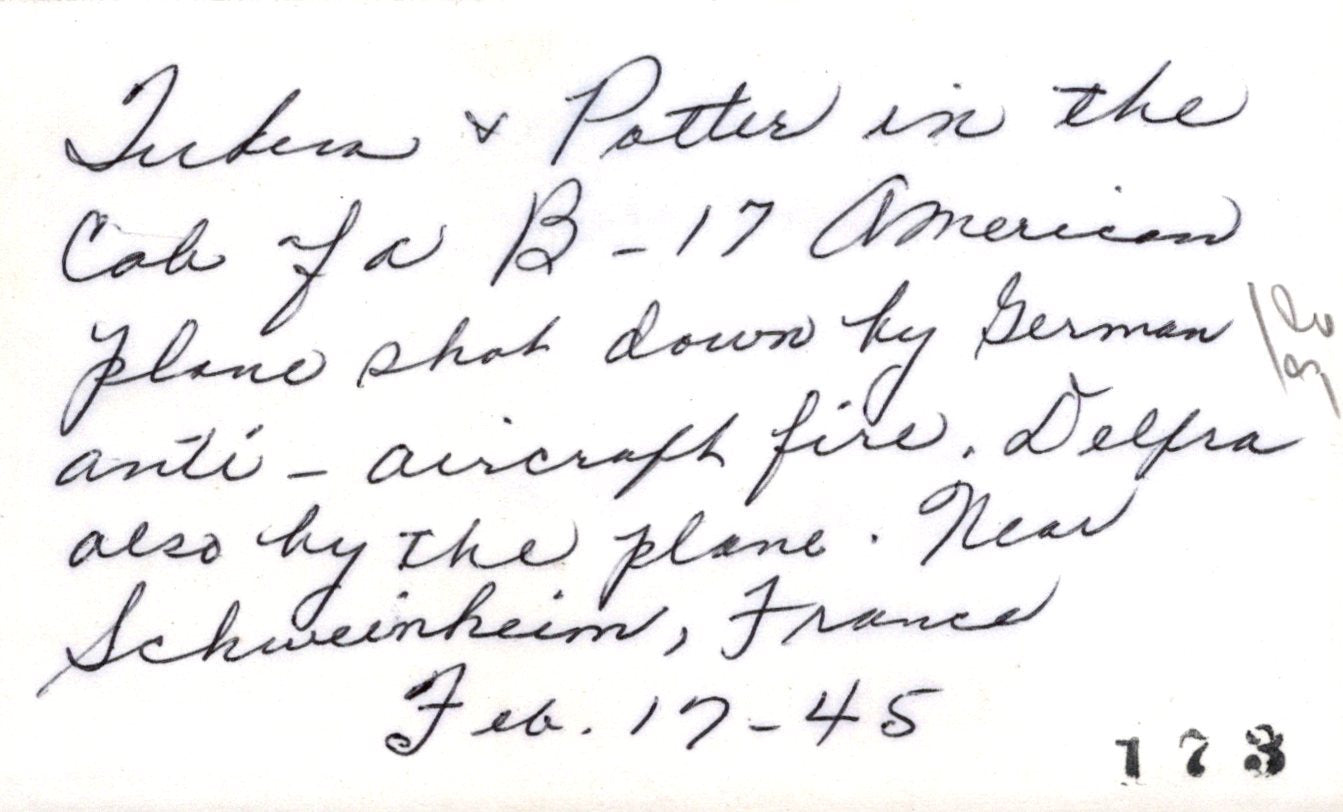 & Potter in the
Cab of a B-17 American
plane shot down by German
anti-aircraft fire. Delfra
also by the plane. Near
Schweinheim, France
Feb. 17-45
173